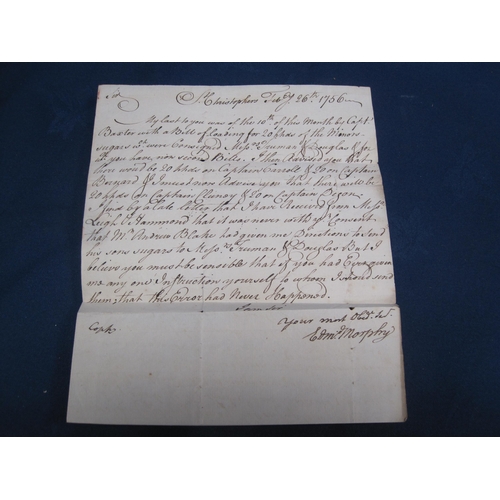 Sir
St Christophers Feby. 26th. 1756
My last to you was of the 10th of this Month by Captn
Baxter with a Bill of loading for 20 hhds of the Minors
sugars wch. were Consigned Messrs Truman & Douglas & for
wch you have now second Bills. I then advised you that
there would be 20 hhds on Captain Carroll & 20 on Captain
& I must now Advise you that there will be
20 hhds on Captain & 20 on Captain
I find by a late Letter that I have Received from Messrs
Leigh & Hammond that it was never with yr Consent
that Mr Andrew Blake had given me Directions to Send
his sons sugars to Messrs Truman & Douglas But I
believe you must be sensible that if you had Ever given
me any one Instruction yourself to whom I should send
them, that this Error had Never Happened.
I am Sir
Your most Obdt. Sert.
Copy
Edmd Morphy